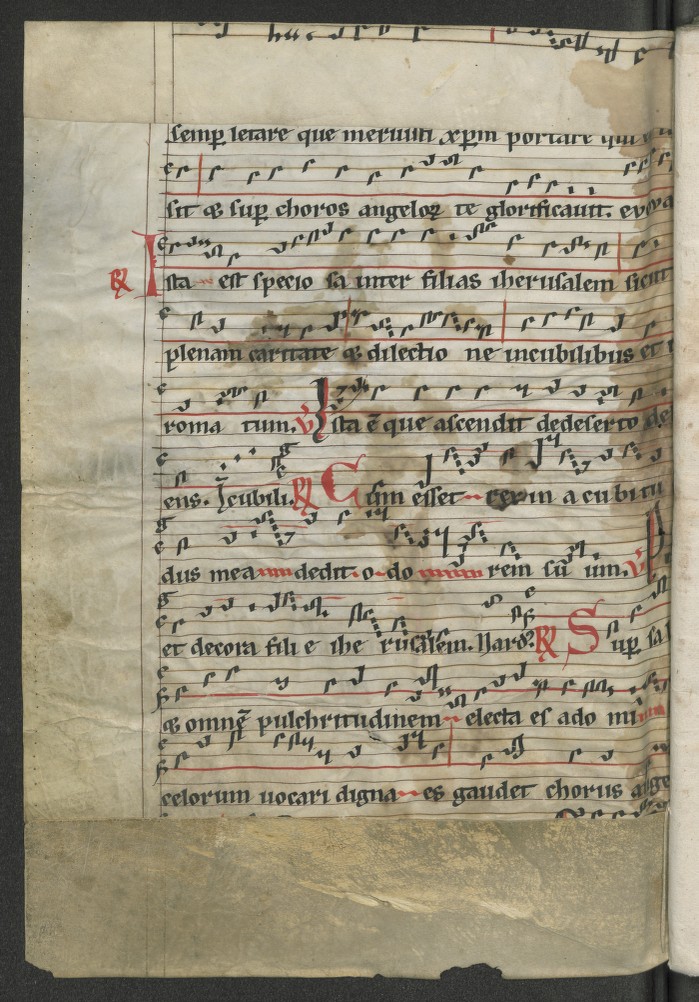 semp letare que meruisti xpm portare qui
sit & sup choros angeloꝝ te glorificauit. evova
℟ Ista est specio sa inter filias iherusalem sicut
plenam caritate & dilectio ne in cubilibus et
roma tum. ℣ Ista ē que ascendit dedeserto de
ens. In cubili. ℟ Cum esset rex in a cu bi tu
dus mea dedit o do rem su um. ℣ P
et decora fili e ihe rusalem. Nard⁹. ℟ Sup sal
& omnē pulchritudinem electa es ado mi
celorum uocari digna es gaudet chorus ange